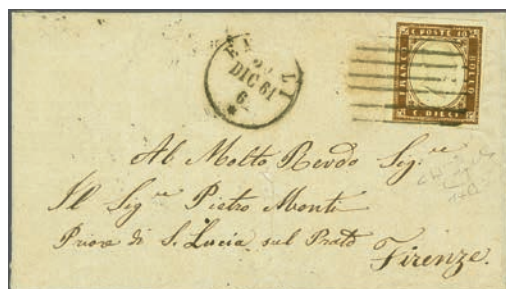 C. POSTE 10
FRANCO
BOLLO
C. DIECI
DIC 61
6
Al Molto Revdo Sig.re
Il Sig.re Pietro Monti
Priore di S. Lucia sul Prato
Firenze.